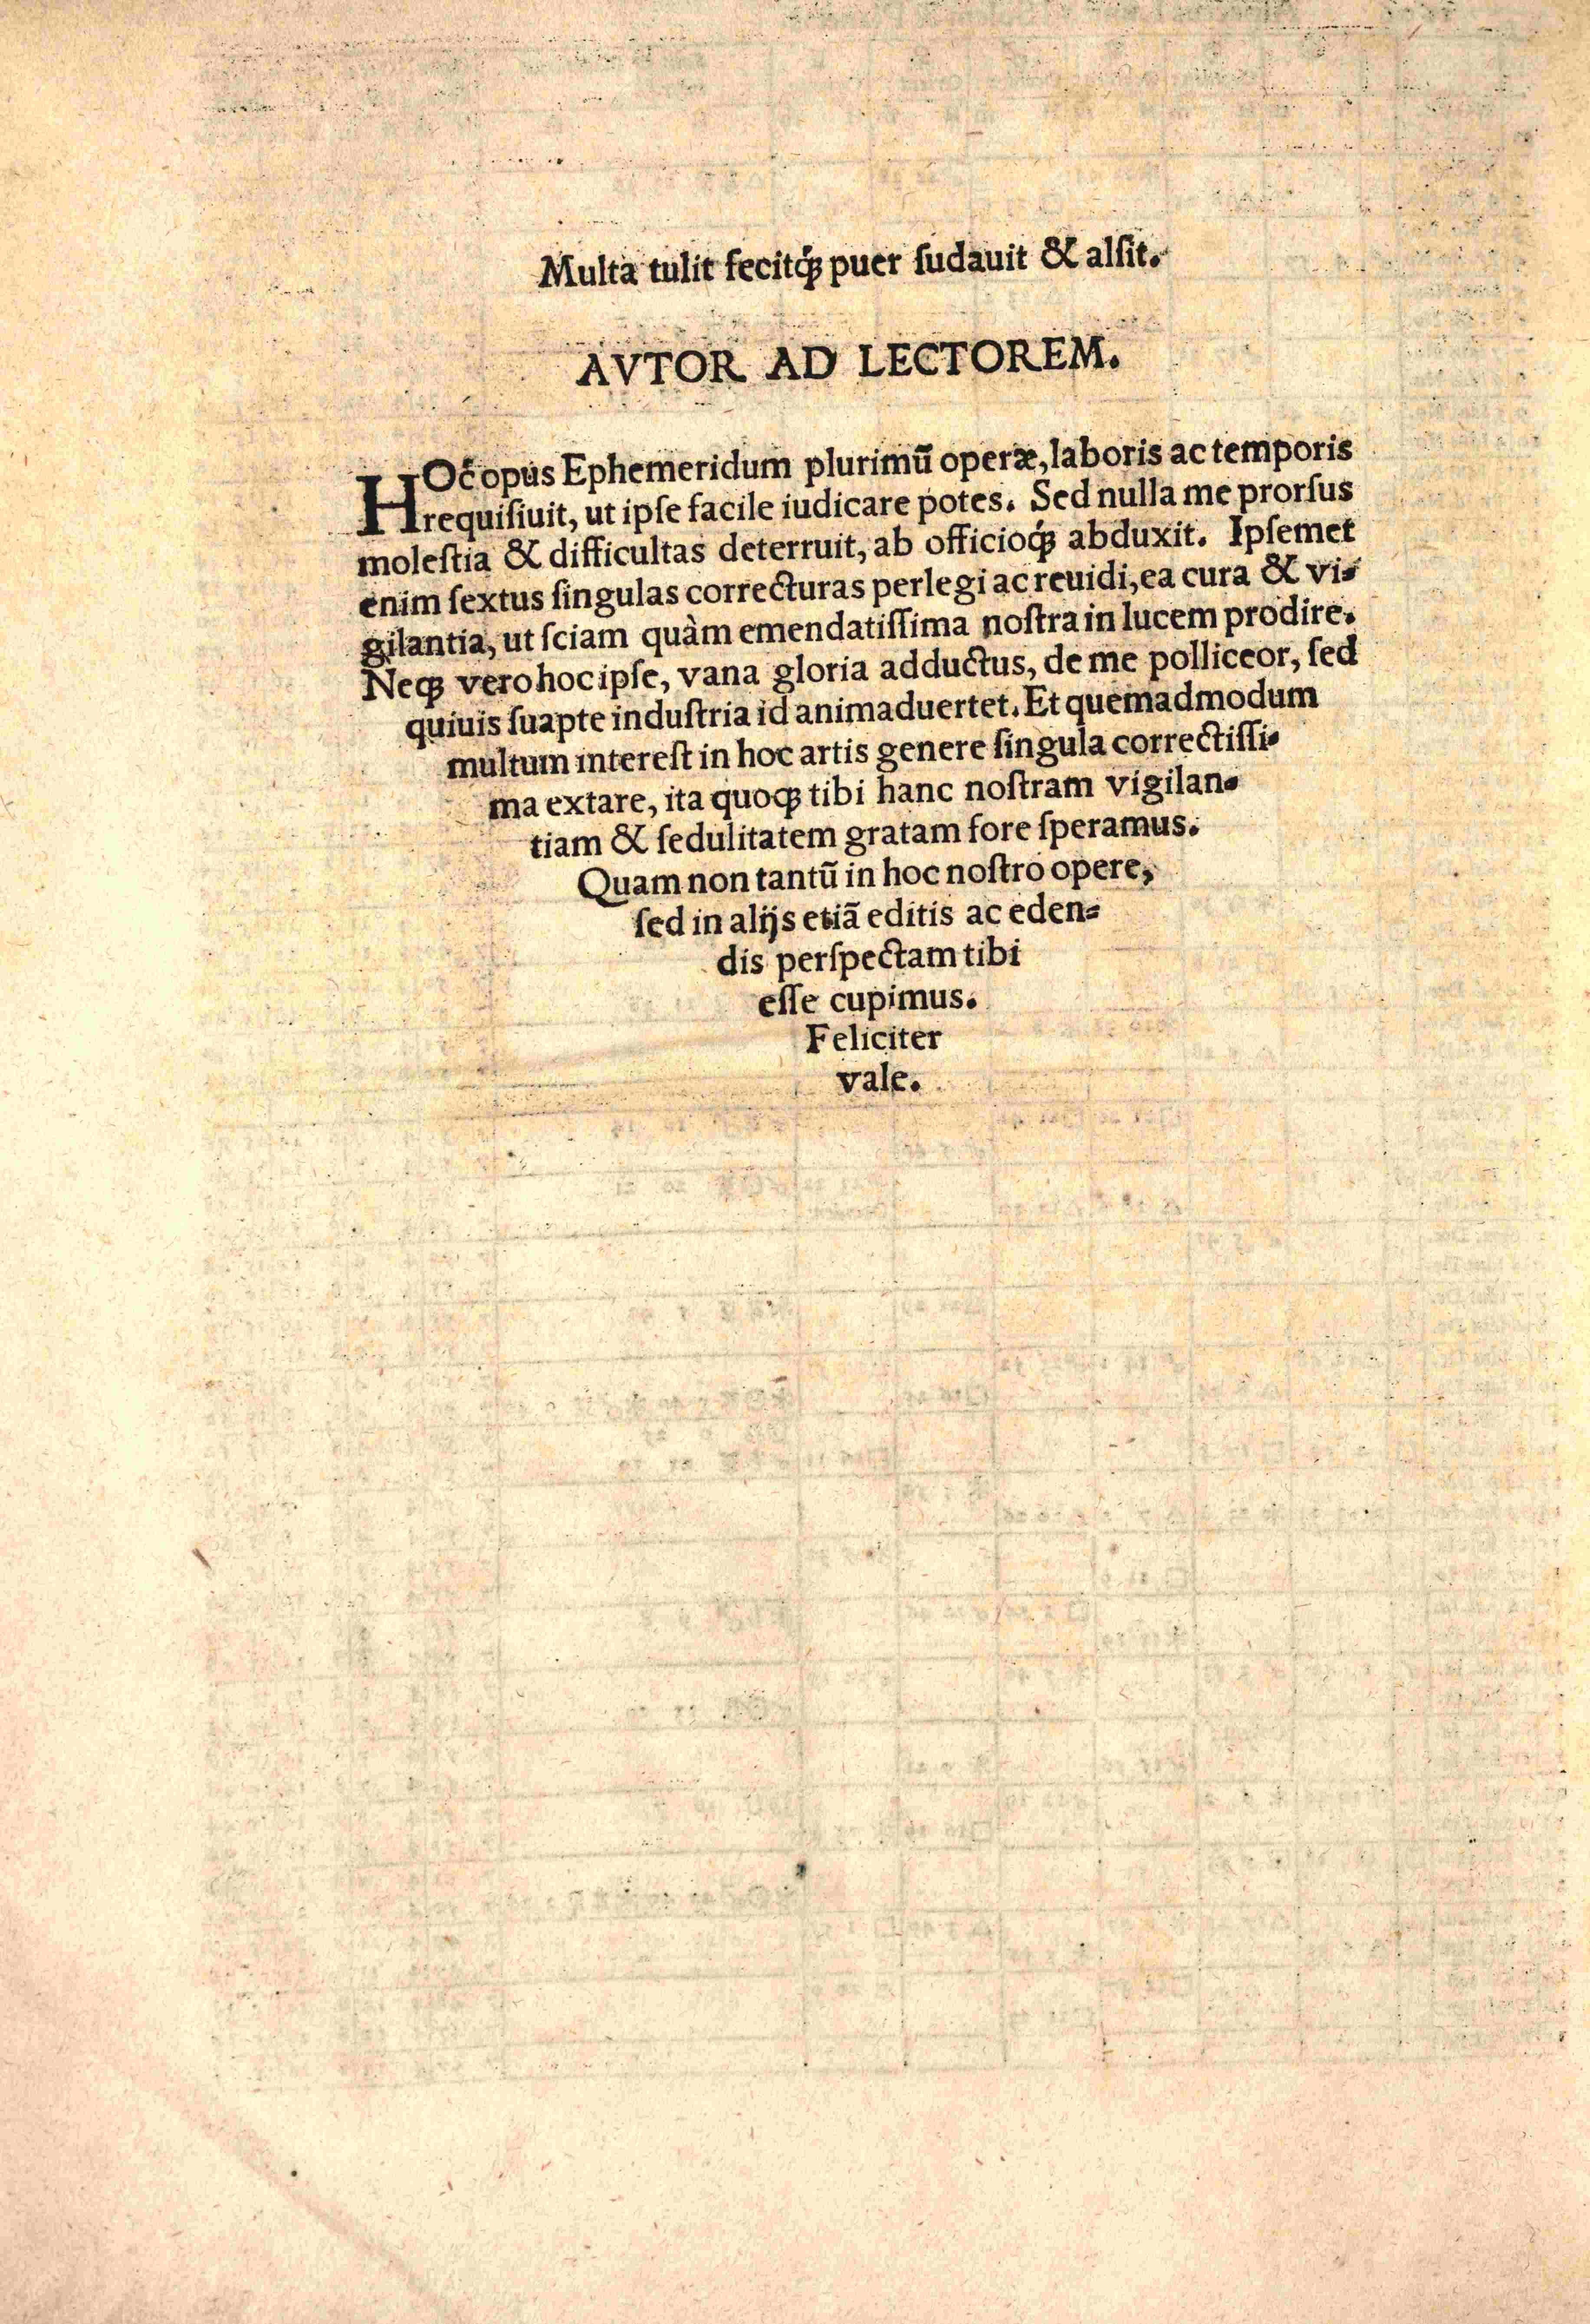 Multa tulit fecitq́ꝫ puer ſudauit & alſit.
AVTOR AD LECTOREM.
HOc̃ opus Ephemeridum plurimũ operæ, laboris ac temporis
requiſiuit, ut ipſe facile iudicare potes. Sed nulla me prorſus
moleſtia & difficultas deterruit, ab officioq́ꝫ abduxit. Ipſemet
enim ſextus ſingulas correcturas perlegi ac reuidi, ea cura & vi⸗
gilantia, ut ſciam quàm emendatiſſima noſtra in lucem prodire.
Neqꝫ vero hoc ipſe, vana gloria adductus, de me polliceor, ſed
quiuis ſuapte induſtria id animaduertet. Et quemadmodum
multum intereſt in hoc artis genere ſingula correctiſſi⸗
ma extare, ita quoqꝫ tibi hanc noſtram vigilan⸗
tiam & ſedulitatem gratam fore ſperamus.
Quam non tantũ in hoc noſtro opere,
ſed in alijs etiã editis ac eden⸗
dis perſpectam tibi
eſſe cupimus.
Feliciter
vale.